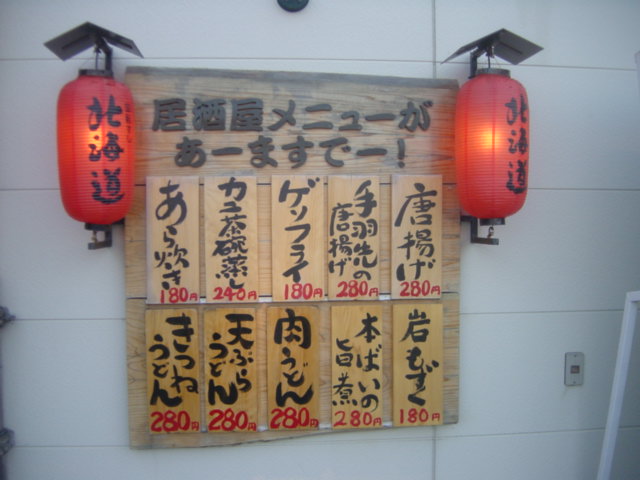 北海道
北海道
居酒屋メニューが
あーますでー！
唐揚げ
280円
手羽先の
唐揚げ
280円
ゲソフライ
180円
カニ茶碗蒸し
240円
あら炊き
180円
岩もずく
180円
本ばいの
旨煮
280円
肉うどん
280円
天ぷら
うどん
280円
きつね
うどん
280円